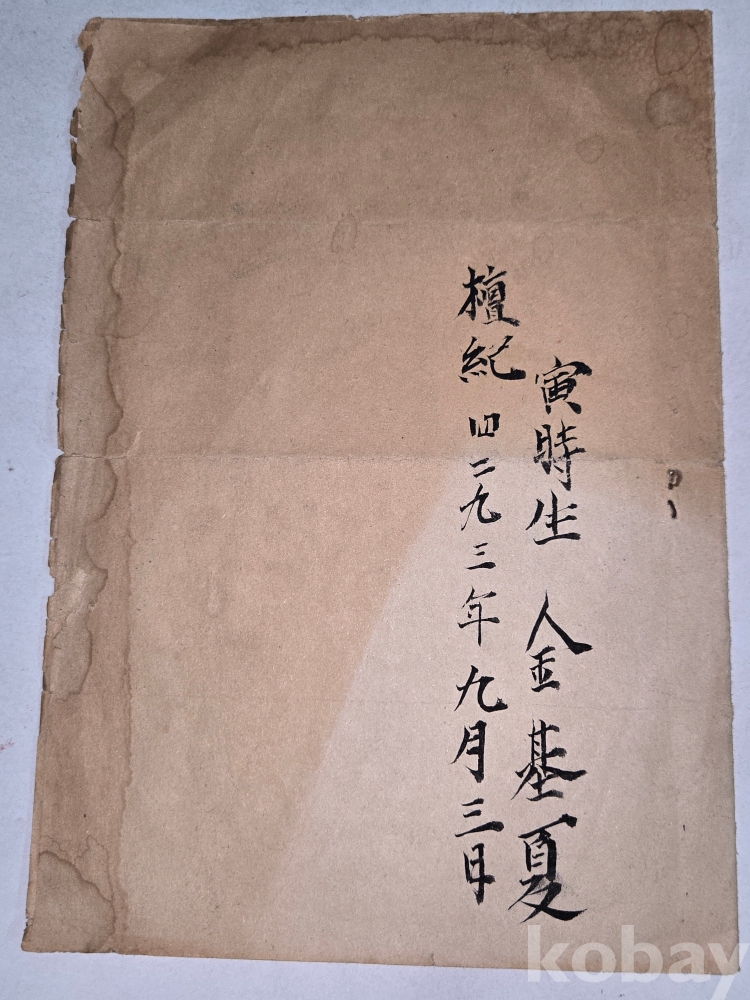 寅時生 金基夏
檀紀四二九三年九月三日
kobay